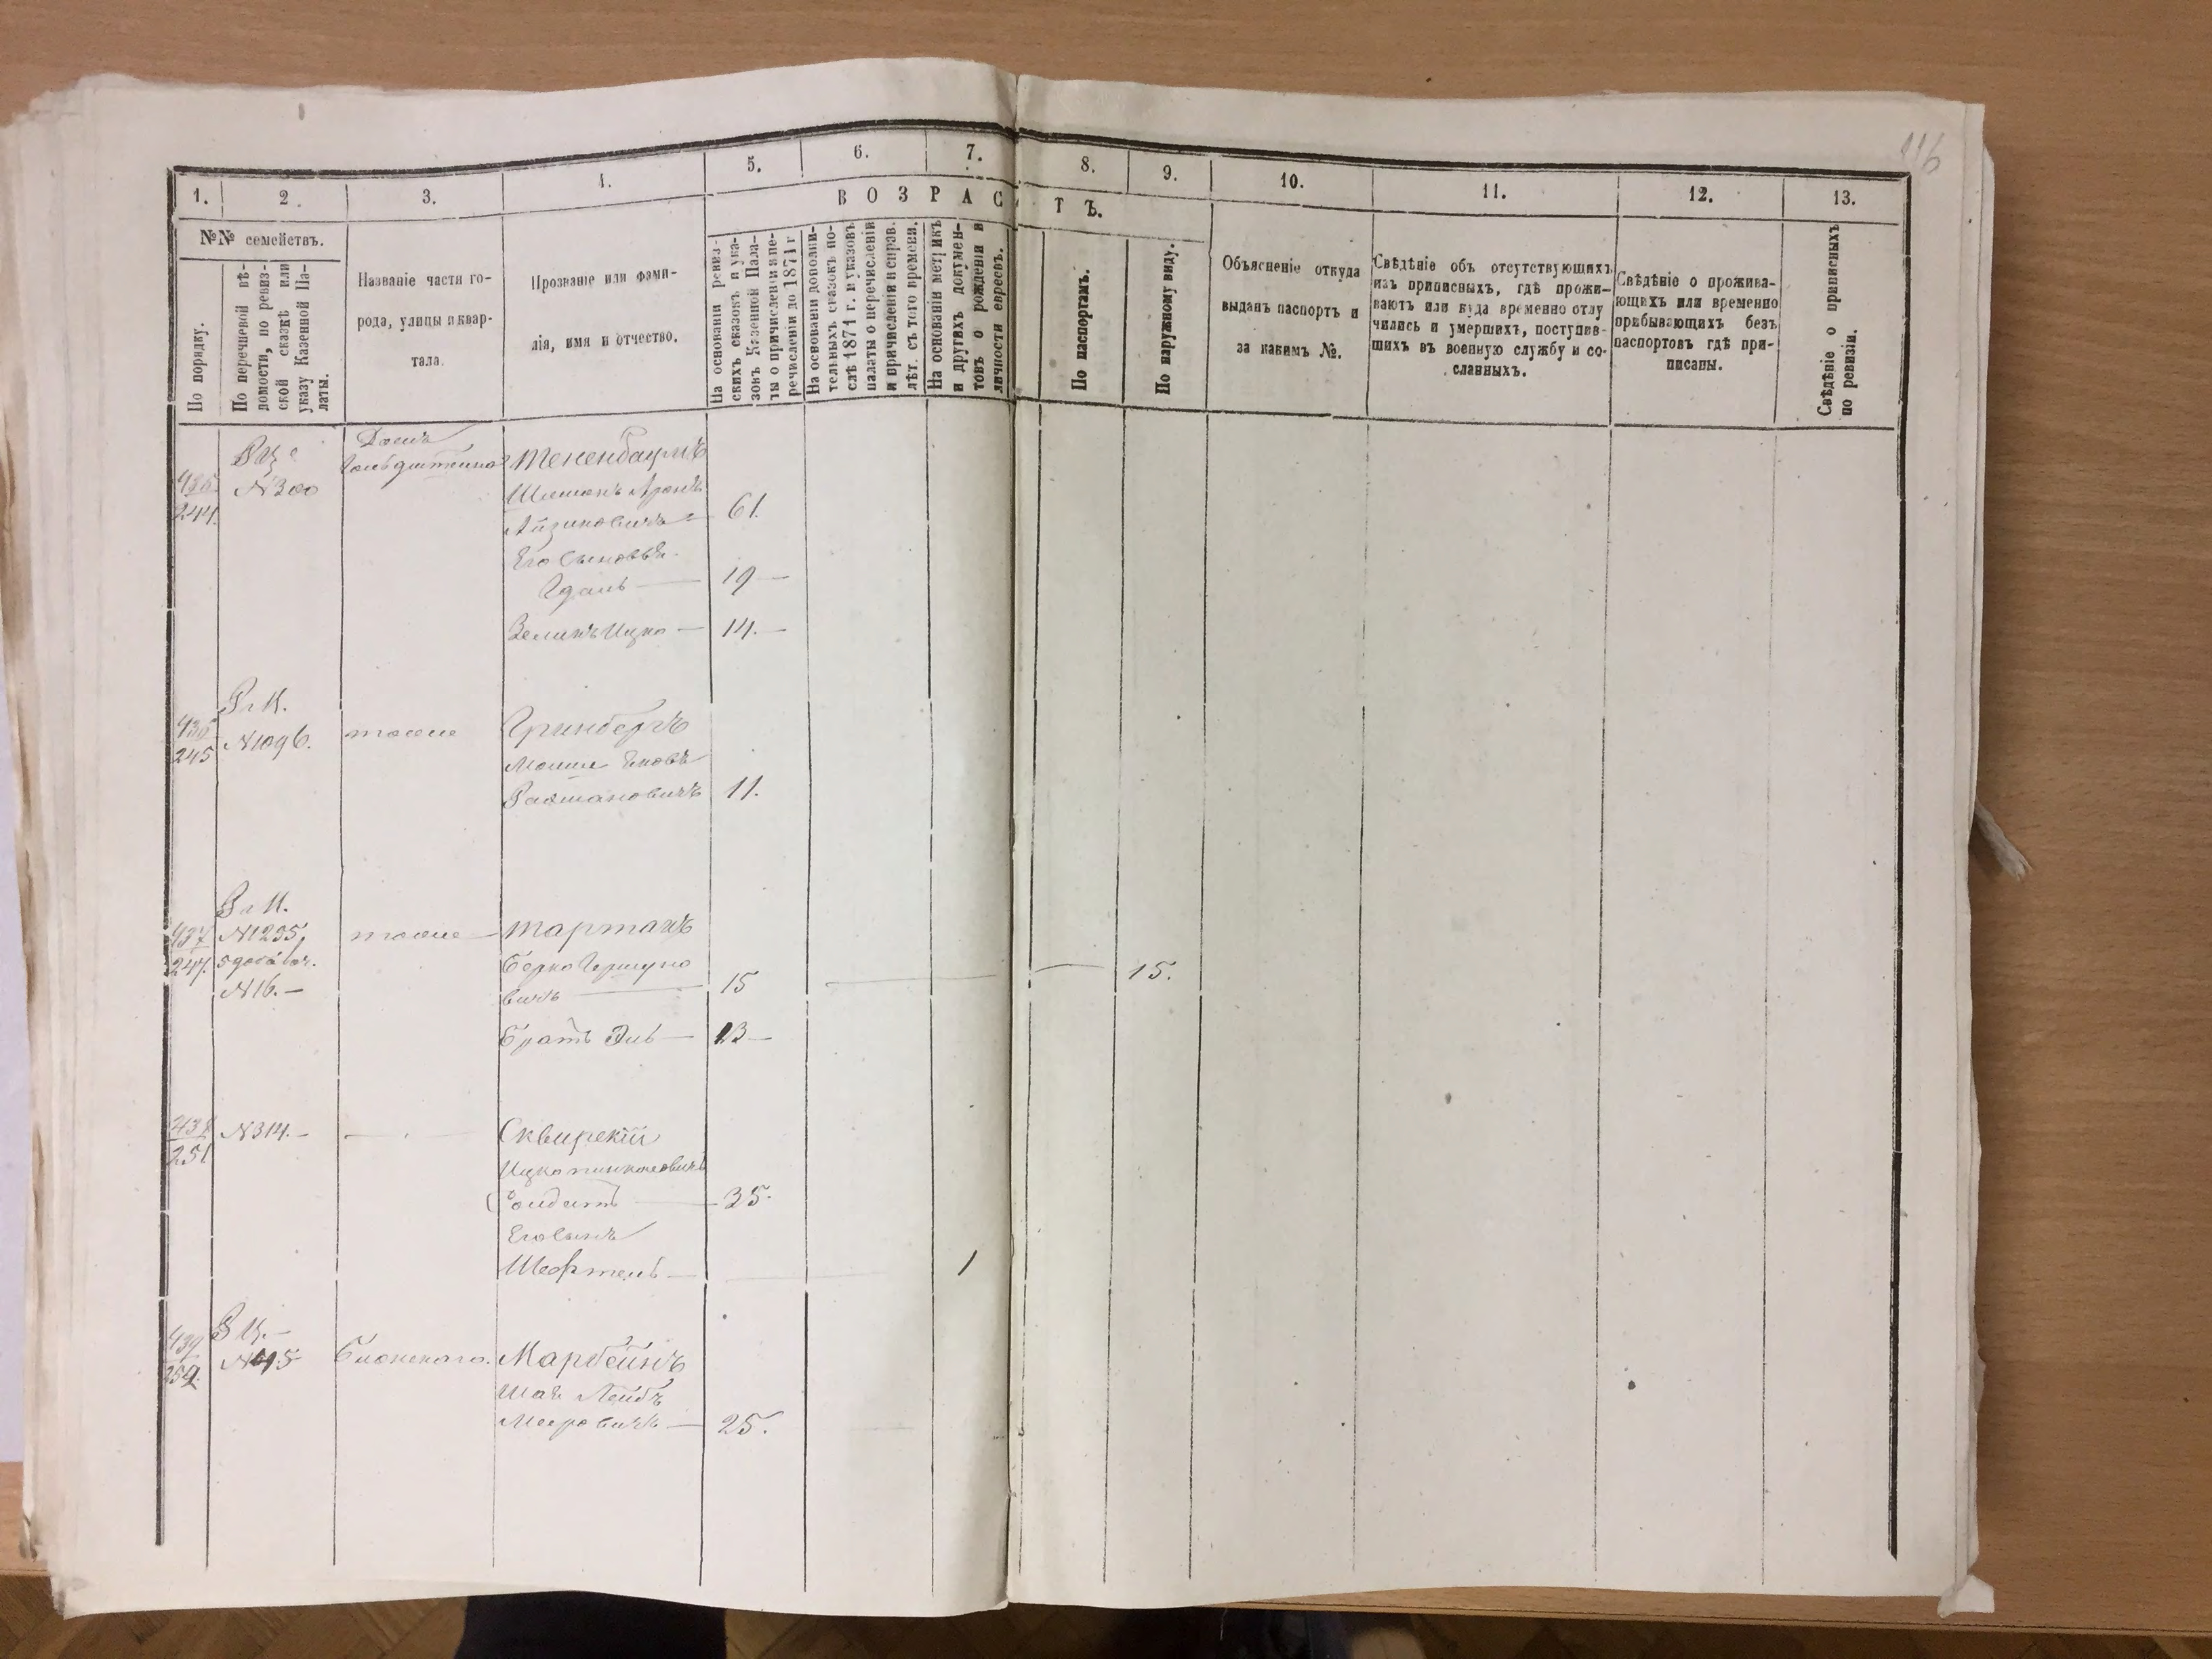 116
1. 2. 3. 4. 5. 6. 7. 8. 9. 10. 11. 12. 13.
В О З Р А С Т Ъ.
№№ семействъ.
По порядку.
По перечневой вѣ-
домости, по ревиз-
ской сказкѣ или
указу Казенной Па-
латы.
Названіе части го-
рода, улицы и квар-
тала.
Прозваніе или фами-
лія, имя и отчество.
На основаніи ревиз-
скихъ сказокъ и ука-
зовъ Казенной Пала-
ты о причисленіи и пе-
речисленіи до 1871 г
На основаніи дополни-
тельныхъ сказокъ по-
слѣ 1871 г. и указовъ
палаты о перечисленіи
и причисленіи и справ.
лѣт. съ того времени.
На основаніи метрикъ
и другихъ докумен-
товъ о рожденіи и
личности евреевъ.
По паспортамъ.
По наружному виду.
Объясненіе откуда
выданъ паспортъ и
за какимъ №.
Свѣдѣніе объ отсутствующихъ
изъ приписныхъ, гдѣ прожи-
ваютъ или куда временно отлу
чились и умершихъ, поступив-
шихъ въ военную службу и со-
сланныхъ.
Свѣдѣніе о прожива-
ющихъ или временно
прибывающихъ безъ
паспортовъ гдѣ при-
писаны.
Свѣдѣніе о приписныхъ
по ревизіи.
Домъ
Тененбаумъ
435 N300
244.
Шимонъ Аронъ
Айзиковичъ 61.
Его сыновья
Гдаль — 19 —
Зеликъ Ицко — 14. —
436 N1096. тоже Гринбергъ
245
Мошко
Рахмановичъ 11.
437 N1235, тоже Тартакъ
247. добавоч. Берко Гершко
N16. — вичъ — 15 — 15.
Братъ Эль — 13 —
438 N314. — Сквирскій
251
Ицко Пинхасовичъ
35.
Его сынъ
Шефтель — 1
439
252. Марбейнъ
Шая Лейбъ
Мееровичъ — 25.